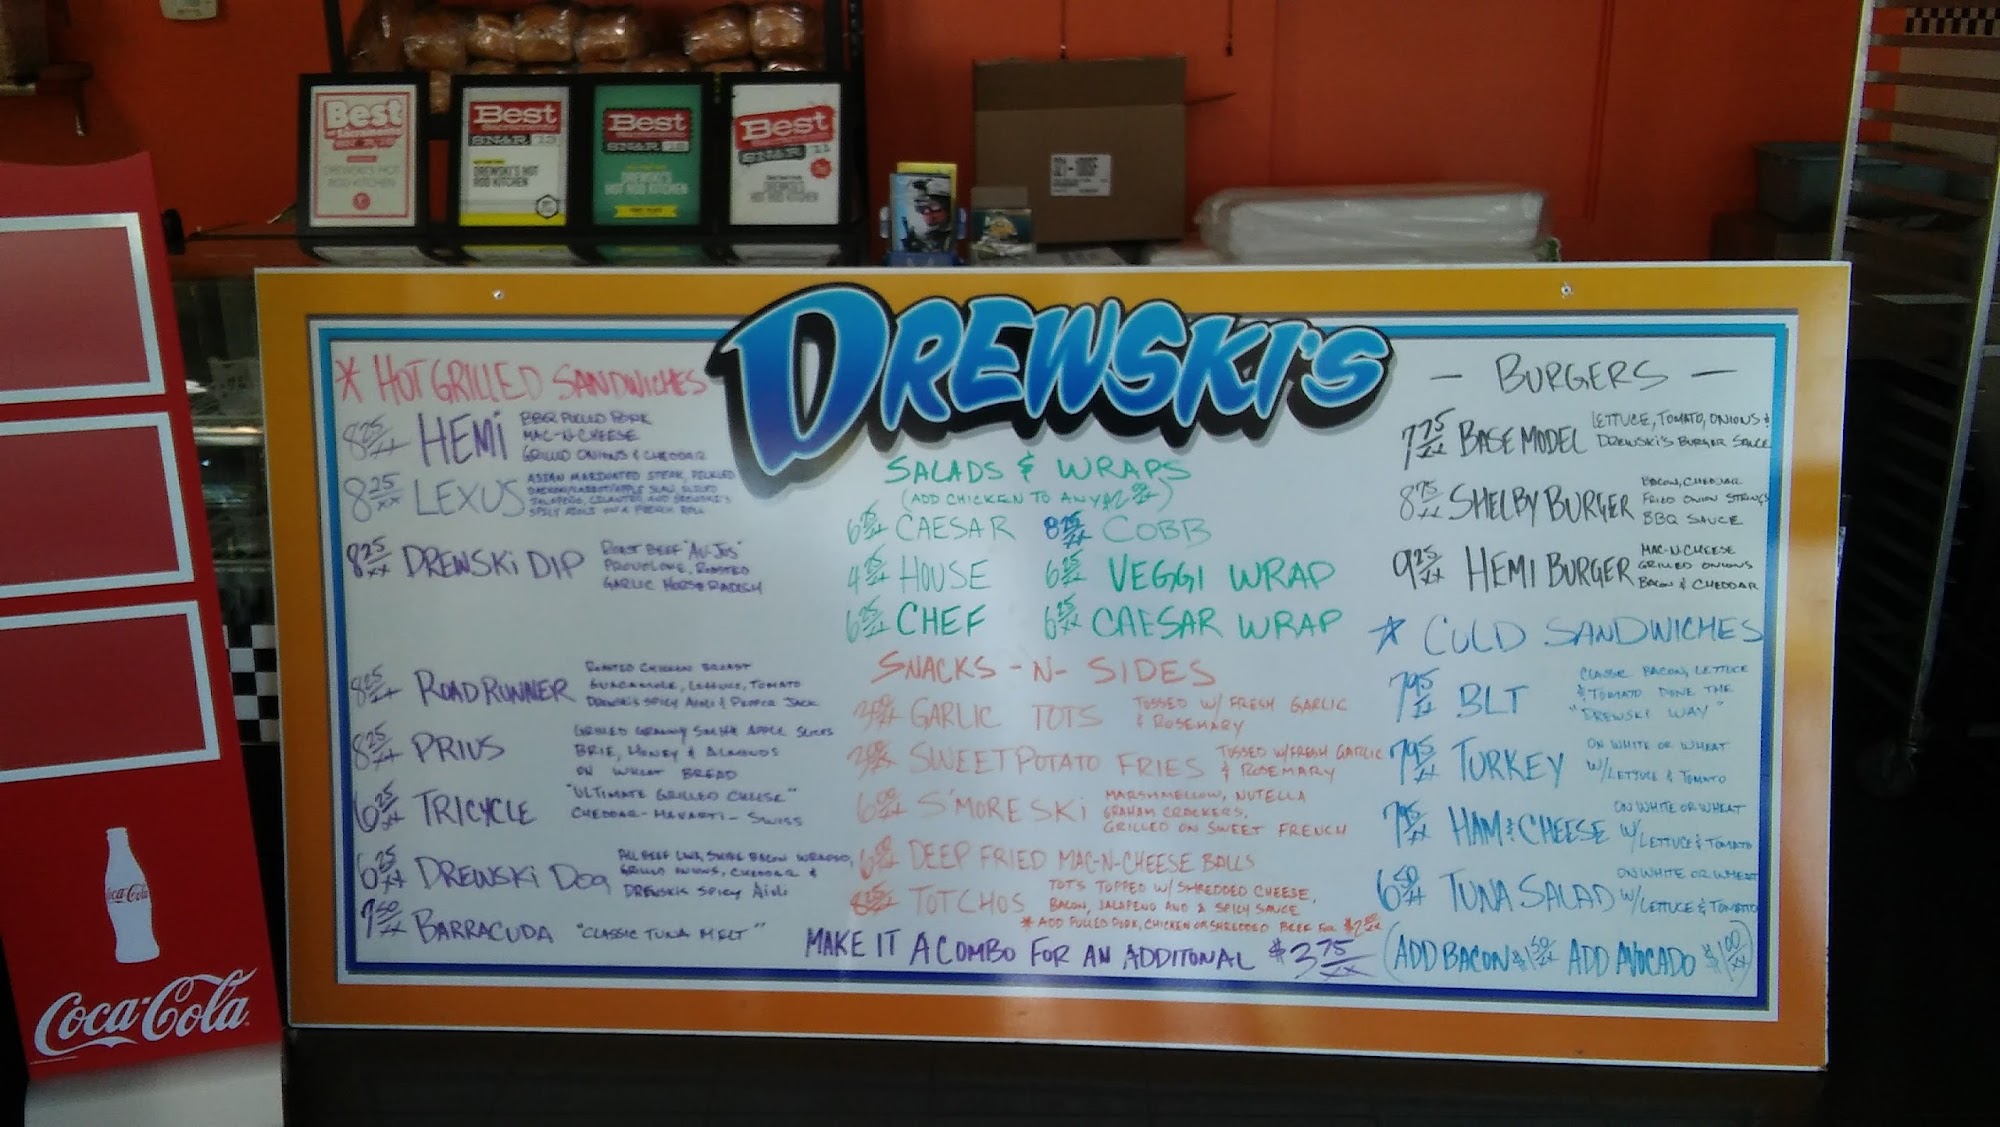 Best
of Sacramento
DREWSKI'S HOT
ROD KITCHEN
Best
SN&R
DREWSKI'S HOT
ROD KITCHEN
Best
SN&R
DREWSKI'S
HOT ROD KITCHEN
Best
SN&R 11
DREWSKI'S
HOT ROD KITCHEN
DREWSKI'S
* HOT GRILLED SANDWICHES
8 25/xx HEMI BBQ PULLED PORK
MAC-N-CHEESE
GRILLED ONIONS & CHEDDAR
8 25/xx LEXUS ASIAN MARINATED STEAK, PICKLED
DAIKON/CARROT/APPLE SLAW, SLICED
JALAPENO, CILANTRO AND DREWSKI'S
SPICY AIOLI ON A FRENCH ROLL
8 25/xx DREWSKI DIP ROAST BEEF "AU-JUS"
PROVOLONE, ROASTED
GARLIC HORSERADISH
8 25/xx ROADRUNNER ROASTED CHICKEN BREAST
GUACAMOLE, LETTUCE, TOMATO
DREWSKI'S SPICY AIOLI & PEPPER JACK
8 25/xx PRIUS GRILLED GRANNY SMITH APPLE SLICES
BRIE, HONEY & ALMONDS
ON WHEAT BREAD
6 25/xx TRICYCLE "ULTIMATE GRILLED CHEESE"
CHEDDAR - HAVARTI - SWISS
6 25/xx DREWSKI DOG ALL BEEF BACON WRAPPED,
GRILLED ONIONS, CHEDDAR &
DREWSKIS SPICY AIOLI
7 50/xx BARRACUDA "CLASSIC TUNA MELT"
SALADS & WRAPS
(ADD CHICKEN TO ANY $2)
CAESAR COBB
HOUSE VEGGI WRAP
CHEF CAESAR WRAP
SNACKS -N- SIDES
GARLIC TOTS TOSSED W/ FRESH GARLIC
& ROSEMARY
SWEET POTATO FRIES TOSSED W/FRESH GARLIC
& ROSEMARY
6 00/xx S'MORESKI MARSHMELLOW, NUTELLA
GRAHAM CRACKERS,
GRILLED ON SWEET FRENCH
DEEP FRIED MAC-N-CHEESE BALLS
TOTCHOS TOTS TOPPED W/ SHREDDED CHEESE,
BACON, JALAPENO AND A SPICY SAUCE
* ADD PULLED PORK, CHICKEN OR SHREDDED BEEF FOR $2 00
MAKE IT A COMBO FOR AN ADDITONAL $3 75/xx
- BURGERS -
7 75/xx BASE MODEL LETTUCE, TOMATO, ONIONS &
DREWSKI'S BURGER SAUCE
8 75/xx SHELBY BURGER BACON, CHEDDAR
FRIED ONION STRINGS
BBQ SAUCE
9 25/xx HEMI BURGER MAC-N-CHEESE
GRILLED ONIONS
BACON & CHEDDAR
* COLD SANDWICHES
7 95/xx BLT CLASSIC BACON, LETTUCE
& TOMATO DONE THE
"DREWSKI WAY"
7 95/xx TURKEY ON WHITE OR WHEAT
W/LETTUCE & TOMATO
7 95/xx HAM & CHEESE ON WHITE OR WHEAT
W/LETTUCE & TOMATO
6 50/xx TUNA SALAD ON WHITE OR WHEAT
W/LETTUCE & TOMATO
(ADD BACON $1 50/xx ADD AVOCADO $1 00/xx)
Coca-Cola
Coca-Cola